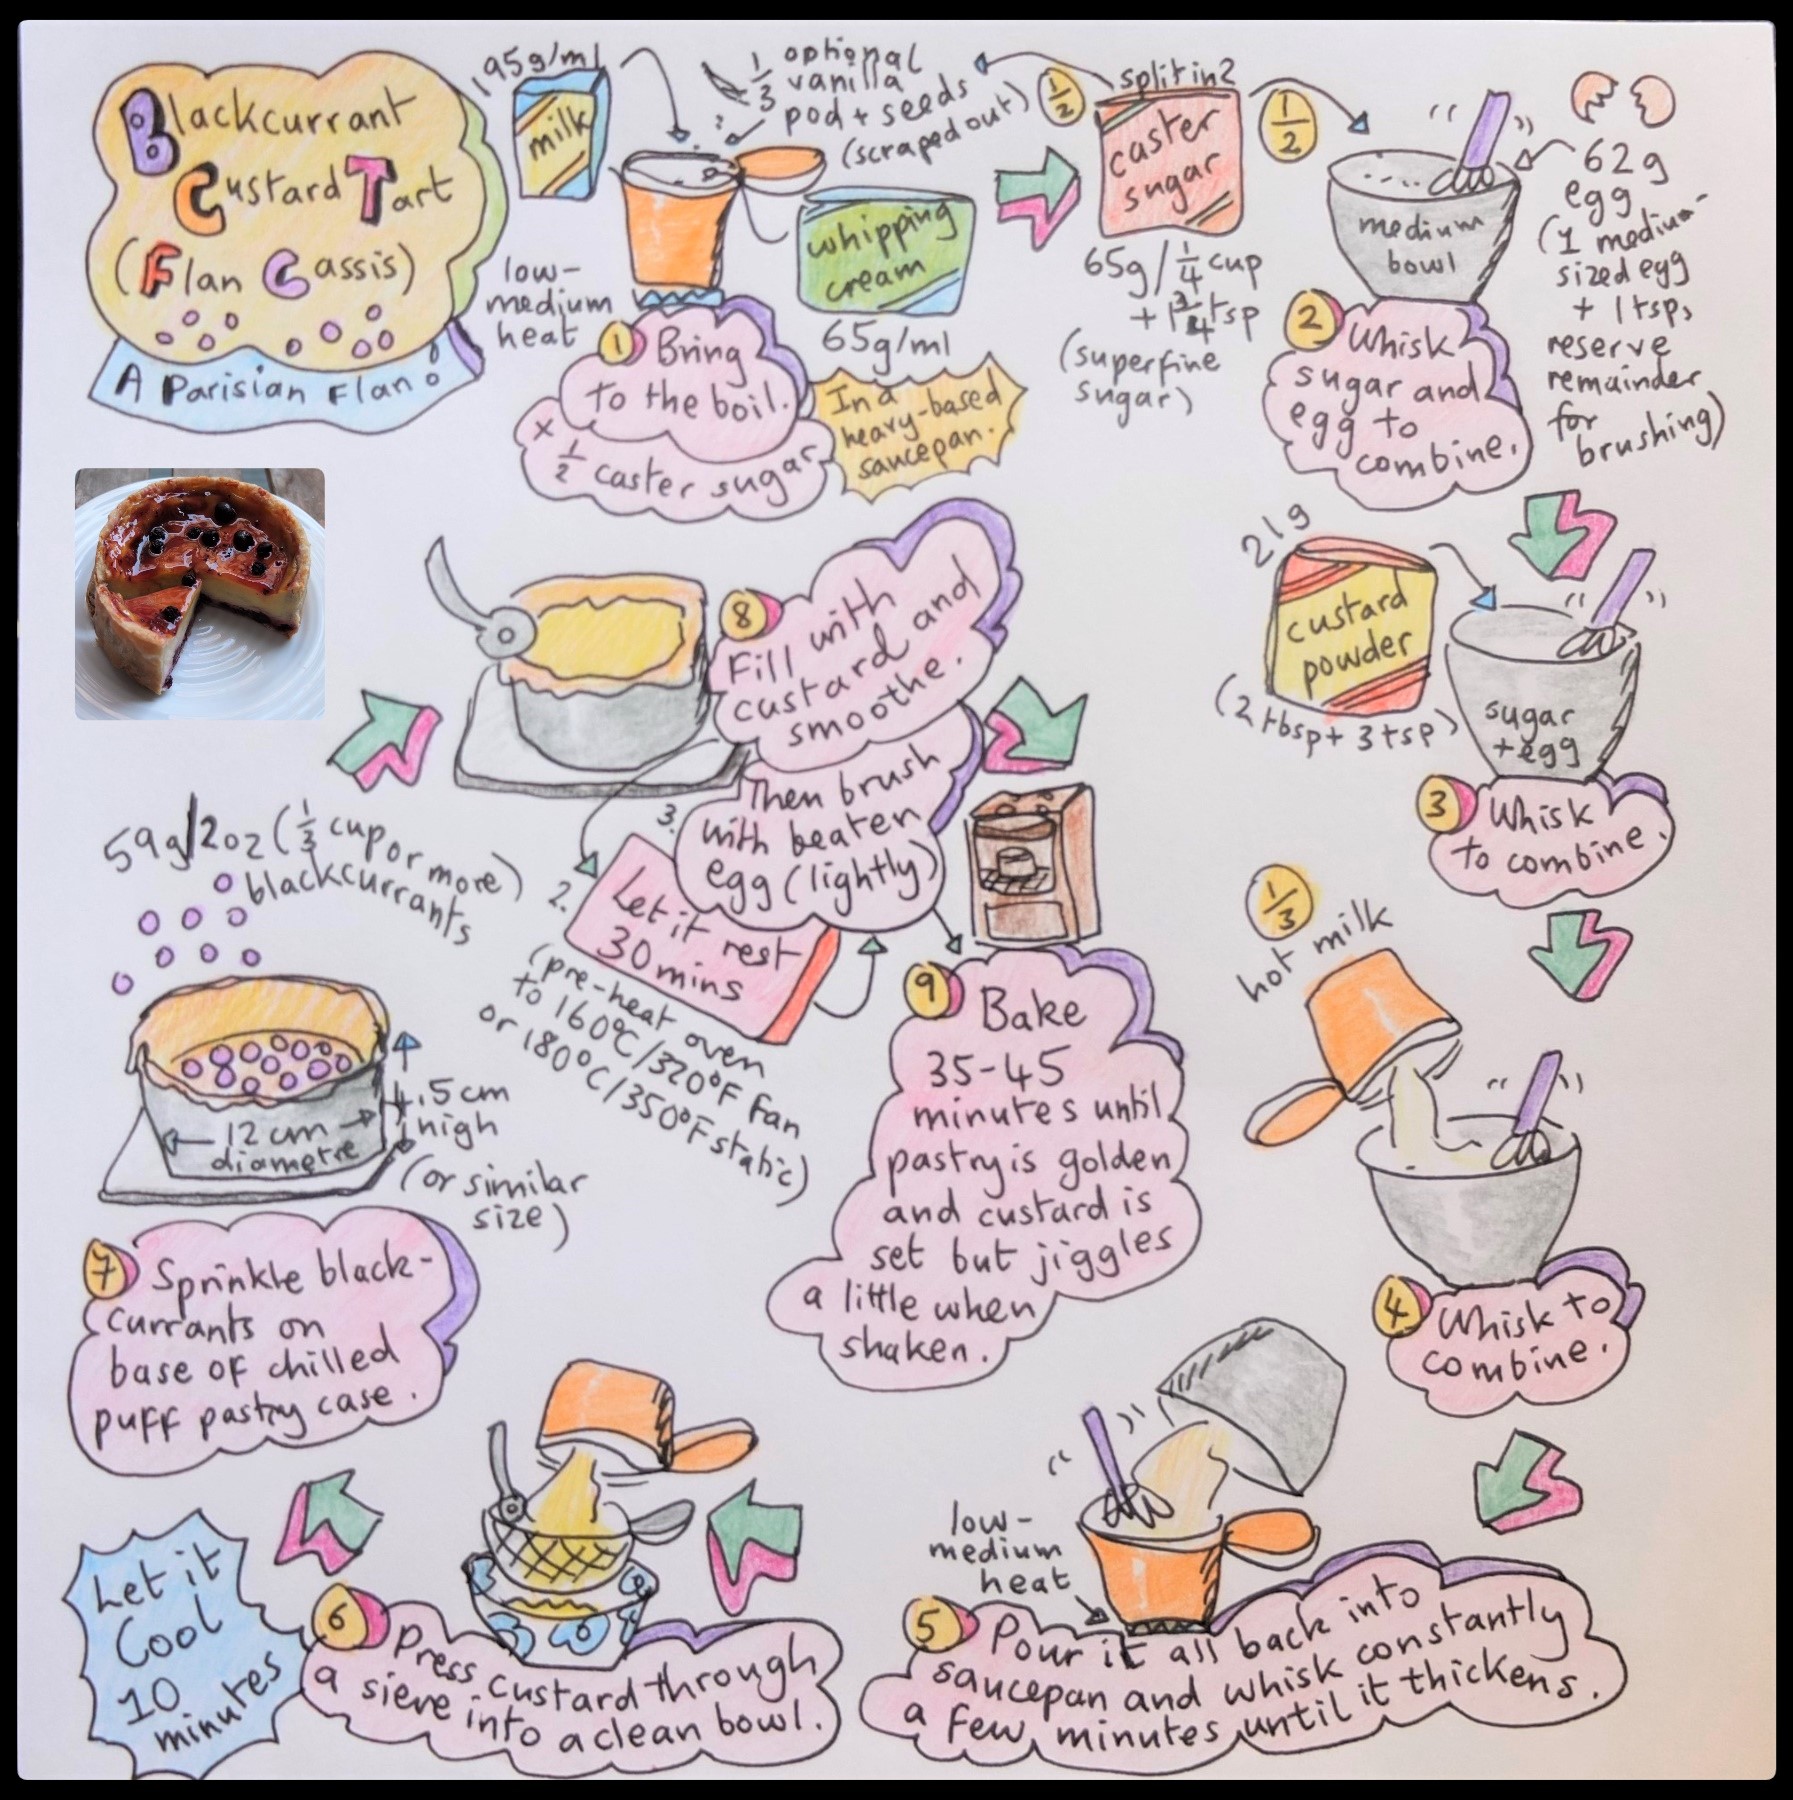 Blackcurrant
Custard Tart
(Flan Cassis)
A Parisian Flan!
195g/ml
milk
1/3 optional
vanilla
pod + seeds
(scraped out)
whipping
cream
65g/ml
low-
medium
heat
1 Bring
to the boil.
x 1/2 caster sugar
In a
heavy-based
saucepan.
1/2
split in 2
1/2
caster
sugar
65g/1/4 cup
+ 1 3/4 tsp
(superfine
sugar)
medium
bowl
62g
egg
(1 medium-
sized egg
+ 1 tsp,
reserve
remainder
for
brushing)
2 Whisk
sugar and
egg to
combine.
21g
custard
powder
(2 tbsp + 3 tsp)
sugar
+ egg
3 Whisk
to combine.
1/3
hot milk
4 Whisk to
combine.
low-
medium
heat
5 Pour it all back into
saucepan and whisk constantly
a few minutes until it thickens.
6 Press custard through
a sieve into a clean bowl.
Let it
Cool
10
minutes
59g/2oz (1/3 cup or more)
blackcurrants
12 cm
diametre
4.5cm
high
(or similar
size)
7 Sprinkle black-
currants on
base of chilled
puff pastry case.
8 Fill with
custard and
smoothe.
2.
Let it rest
30 mins
(pre-heat oven
to 160°C/320°F fan
or 180°C/350°F static)
3.
Then brush
with beaten
egg (lightly)
9 Bake
35-45
minutes until
pastry is golden
and custard is
set but jiggles
a little when
shaken.